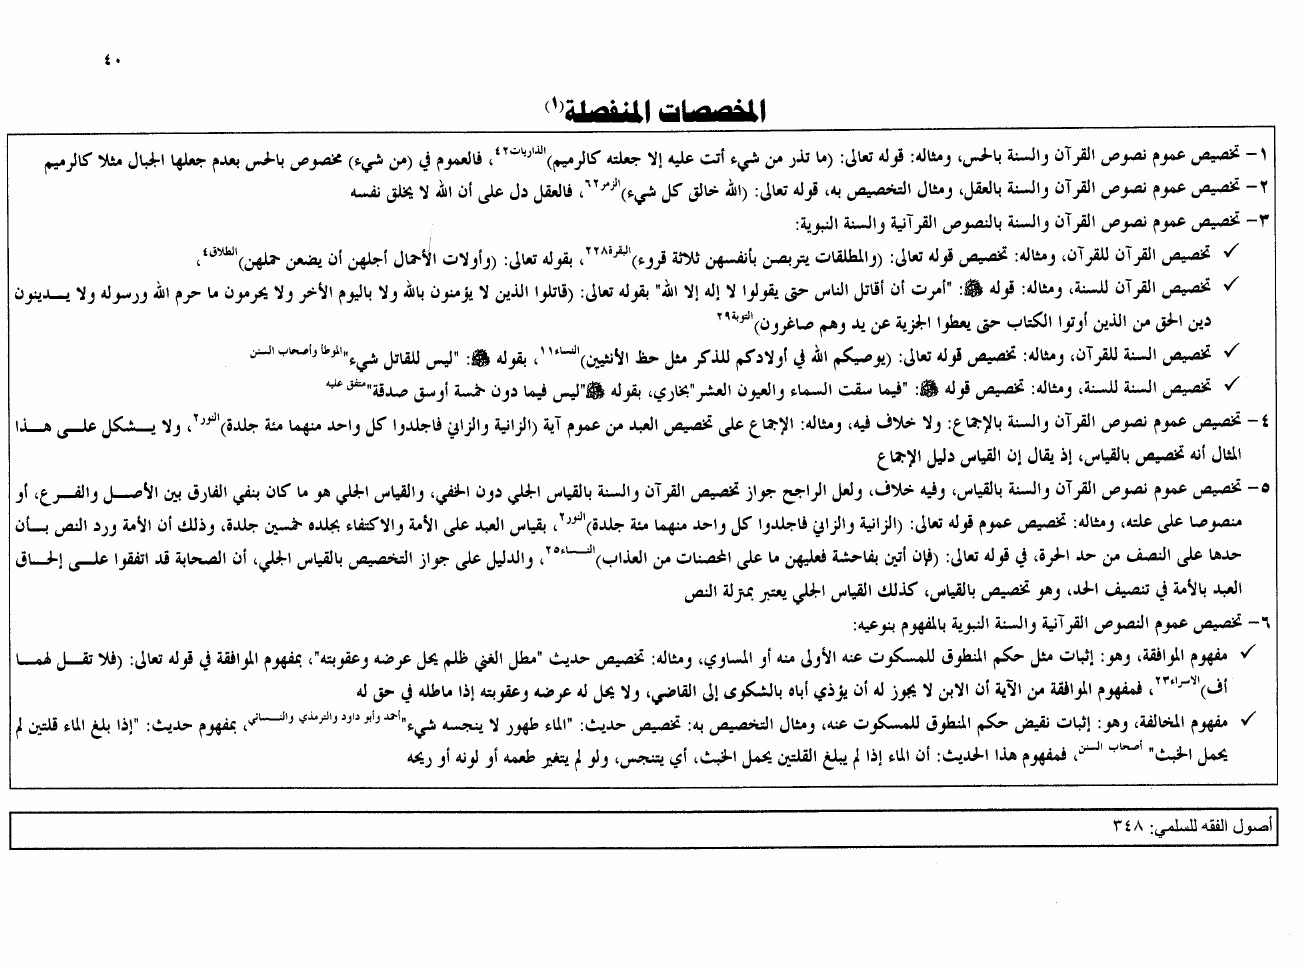 ٤٠
المخصصات المنفصلة(١)
١- تخصيص عموم نصوص القرآن والسنة بالحس، ومثاله: قوله تعالى: (ما تذر من شيء أتت عليه إلا جعلته كالرميم)الذاريات٤٢، فالعموم في (من شيء) مخصوص بالحس بعدم جعلها الجبال مثلا كالرميم
٢- تخصيص عموم نصوص القرآن والسنة بالعقل، ومثال التخصيص به، قوله تعالى: (الله خالق كل شيء)الزمر٦٢، فالعقل دل على أن الله لا يخلق نفسه
٣- تخصيص عموم نصوص القرآن والسنة بالنصوص القرآنية والسنة النبوية:
✓ تخصيص القرآن للقرآن، ومثاله: تخصيص قوله تعالى: (والمطلقات يتربصن بأنفسهن ثلاثة قروء)البقرة٢٢٨، بقوله تعالى: (وأولات الأحمال أجلهن أن يضعن حملهن)الطلاق٤،
✓ تخصيص القرآن للسنة، ومثاله: قوله ﷺ: "أمرت أن أقاتل الناس حتى يقولوا لا إله إلا الله" بقوله تعالى: (قاتلوا الذين لا يؤمنون بالله ولا باليوم الأخر ولا يحرمون ما حرم الله ورسوله ولا يـــدينون
دين الحق من الذين أوتوا الكتاب حتى يعطوا الجزية عن يد وهم صاغرون)التوبة٢٩
✓ تخصيص السنة للقرآن، ومثاله: تخصيص قوله تعالى: (يوصيكم الله في أولادكم للذكر مثل حظ الأنثيين)النساء١١، بقوله ﷺ: "ليس للقاتل شيء"الموطأ وأصحاب السنن
✓ تخصيص السنة للسنة، ومثاله: تخصيص قوله ﷺ: "فيما سقت السماء والعيون العشر"بخاري، بقوله ﷺ"ليس فيما دون خمسة أوسق صدقة"متفق عليه
٤- تخصيص عموم نصوص القرآن والسنة بالإجماع: ولا خلاف فيه، ومثاله: الإجماع على تخصيص العبد من عموم آية (الزانية والزاني فاجلدوا كل واحد منهما مئة جلدة)النور٢، ولا يـــشكل علـــى هـــذا
المثال أنه تخصيص بالقياس، إذ يقال إن القياس دليل الإجماع
٥- تخصيص عموم نصوص القرآن والسنة بالقياس، وفيه خلاف، ولعل الراجح جواز تخصيص القرآن والسنة بالقياس الجلي دون الخفي، والقياس الجلي هو ما كان بنفي الفارق بين الأصـــل والفـــرع، أو
منصوصا على علته، ومثاله: تخصيص عموم قوله تعالى: (الزانية والزاني فاجلدوا كل واحد منهما مئة جلدة)النور٢، بقياس العبد على الأمة والاكتفاء بجلده خمسين جلدة، وذلك أن الأمة ورد النص بـــأن
حدها على النصف من حد الحرة، في قوله تعالى: (فإن أتين بفاحشة فعليهن ما على المحصنات من العذاب)النـــساء٢٥، والدليل على جواز التخصيص بالقياس الجلي، أن الصحابة قد اتفقوا علـــى إلحـــاق
العبد بالأمة في تنصيف الحد، وهو تخصيص بالقياس، كذلك القياس الجلي يعتبر بمنزلة النص
٦- تخصيص عموم النصوص القرآنية والسنة النبوية بالمفهوم بنوعيه:
✓ مفهوم الموافقة، وهو: إثبات مثل حكم المنطوق للمسكوت عنه الأولى منه أو المساوي، ومثاله: تخصيص حديث "مطل الغني ظلم يحل عرضه وعقوبته"، بمفهوم الموافقة في قوله تعالى: (فلا تقـــل لهمـــا
أف)الاسراء٢٣، فمفهوم الموافقة من الآية أن الابن لا يجوز له أن يؤذي أباه بالشكوى إلى القاضي، ولا يحل له عرضه وعقوبته إذا ماطله في حق له
✓ مفهوم المخالفة، وهو: إثبات نقيض حكم المنطوق للمسكوت عنه، ومثال التخصيص به: تخصيص حديث: "الماء طهور لا ينجسه شيء"أحمد وأبو داود والترمذي والنـــسائي، بمفهوم حديث: "إذا بلغ الماء قلتين لم
يحمل الخبث" أصحاب السنن، فمفهوم هذا الحديث: أن الماء إذا لم يبلغ القلتين يحمل الخبث، أي يتنجس، ولو لم يتغير طعمه أو لونه أو ريحه
أصول الفقه للسلمي: ٣٤٨